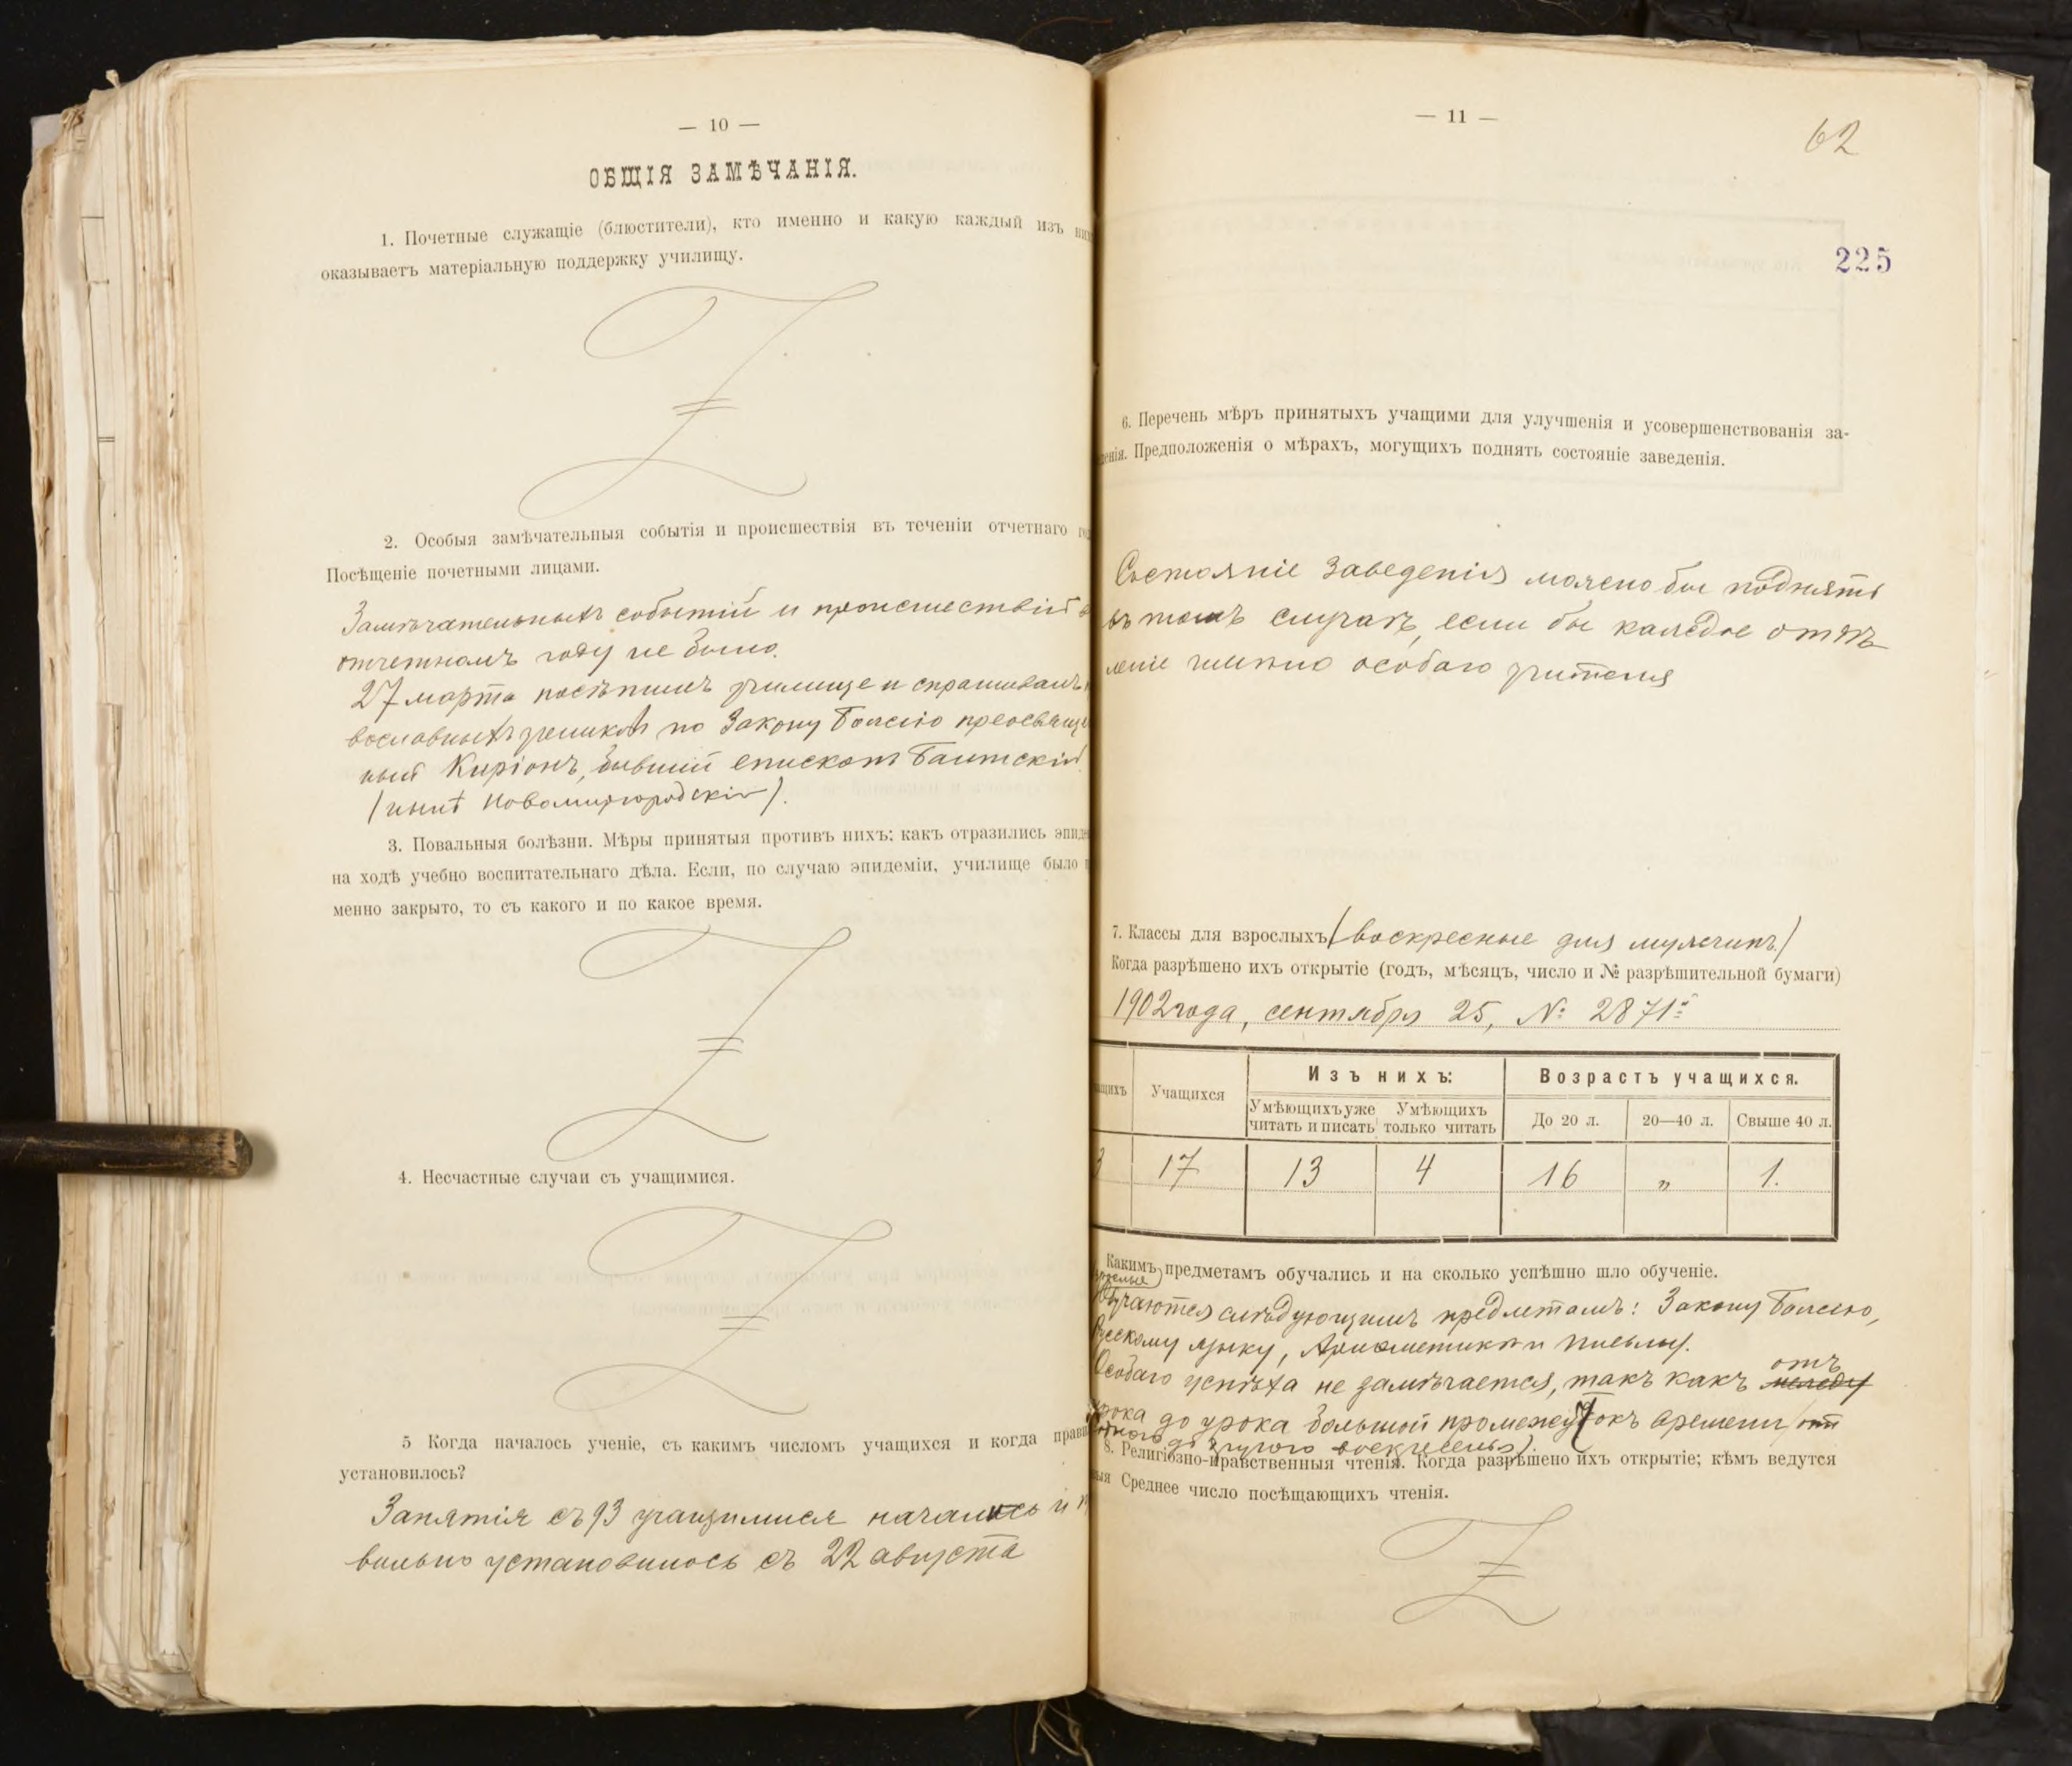 — 10 —
ОБЩІЯ ЗАМѢЧАНІЯ.
1. Почетные служащіе (блюстители), кто именно и какую каждый изъ них
оказываетъ матеріальную поддержку училищу.
2. Особыя замѣчательныя событія и происшествія въ теченіи отчетнаго го
Посѣщеніе почетными лицами.
Замѣчательныхъ событій и происшествій в
отчетномъ году не было.
27 марта посѣтилъ училище и спрашивалъ
вославныхъ учениковъ по Закону Божію преосвящен
ный Киріонъ, бывшій епископъ Балтскій
(нынѣ Новомиргородскій).
3. Повальныя болѣзни. Мѣры принятыя противъ нихъ; какъ отразились эпиде
на ходѣ учебно воспитательнаго дѣла. Если, по случаю эпидеміи, училище было
менно закрыто, то съ какого и по какое время.
4. Несчастные случаи съ учащимися.
5 Когда началось ученіе, съ какимъ числомъ учащихся и когда прави
установилось?
Занятія съ 93 учащимися начались и п
вильно установилось съ 22 августа
— 11 —
62
225
6. Перечень мѣръ принятыхъ учащими для улучшенія и усовершенствованія за-
денія. Предположенія о мѣрахъ, могущихъ поднять состояніе заведенія.
Состояніе заведенія можно бы поднять
въ томъ случаѣ, если бы каждое отдѣ
леніе имѣло особаго учителя
7. Классы для взрослыхъ (воскресные для мужчинъ)
Когда разрѣшено ихъ открытіе (годъ, мѣсяцъ, число и № разрѣшительной бумаги)
1902 года, сентября 25, № 2871й
ащихъ Учащихся Изъ нихъ: Возрастъ учащихся.
Умѣющихъ уже читать и писать Умѣющихъ только читать До 20 л. 20—40 л. Свыше 40 л.
3 17 13 4 16 „ 1.
Какимъ предметамъ обучались и на сколько успѣшно шло обученіе.
Обучаются слѣдующимъ предметамъ: Закону Божію,
Русскому языку, Ариѳметикѣ и письму.
Особаго успѣха не замѣчается, такъ какъ между отъ
урока до урока большой промежутокъ времени (отъ
одного до другого воскресенья).
8. Религіозно-нравственныя чтенія. Когда разрѣшено ихъ открытіе; кѣмъ ведутся
ныя Среднее число посѣщающихъ чтенія.